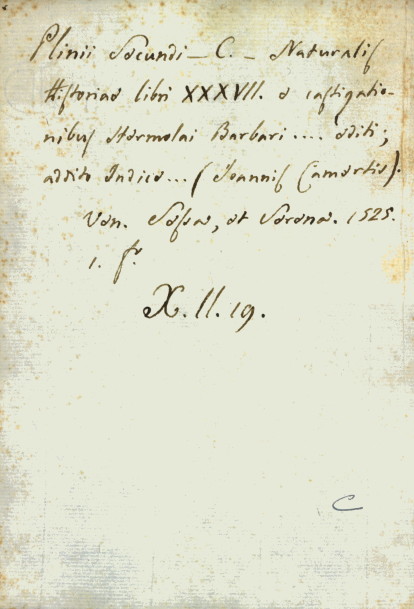 Plinii Secundi - C. - Naturalis
Historiae libri XXXVII. e castigatio-
nibus Hermolai Barbari .... editi;
addito Indice... (Joannis Camertis).
Ven. Sessae, et Serenae. 1525.
1. f.º
X. II. 19.
C